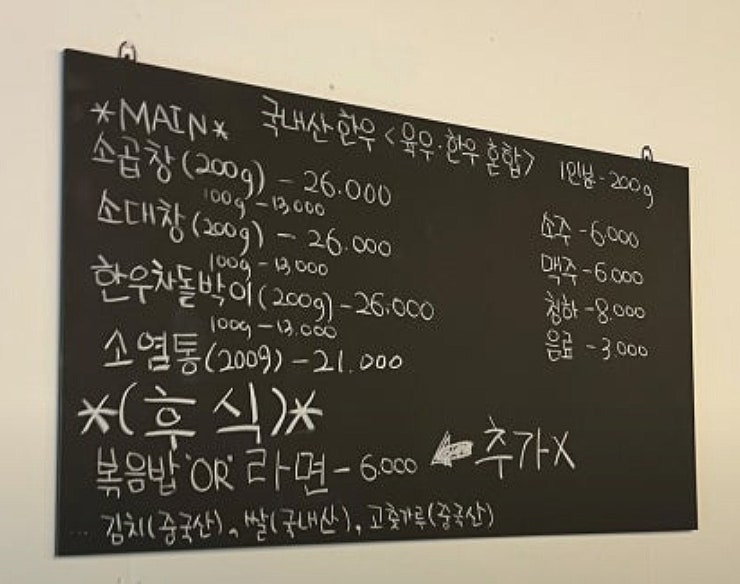 *MAIN* 국내산 한우 <육우·한우 혼합> 1인분 - 200g
소곱창 (200g) - 26.000
100g - 13,000
소대창 (200g) - 26.000
100g - 13,000
한우차돌박이 (200g) - 26.000
100g - 13.000
소염통 (200g) - 21.000
소주 - 6.000
맥주 - 6.000
청하 - 8.000
음료 - 3.000
*(후식)*
볶음밥 'OR' 라면 - 6.000 ← 추가X
김치(중국산), 쌀(국내산), 고춧가루(중국산)